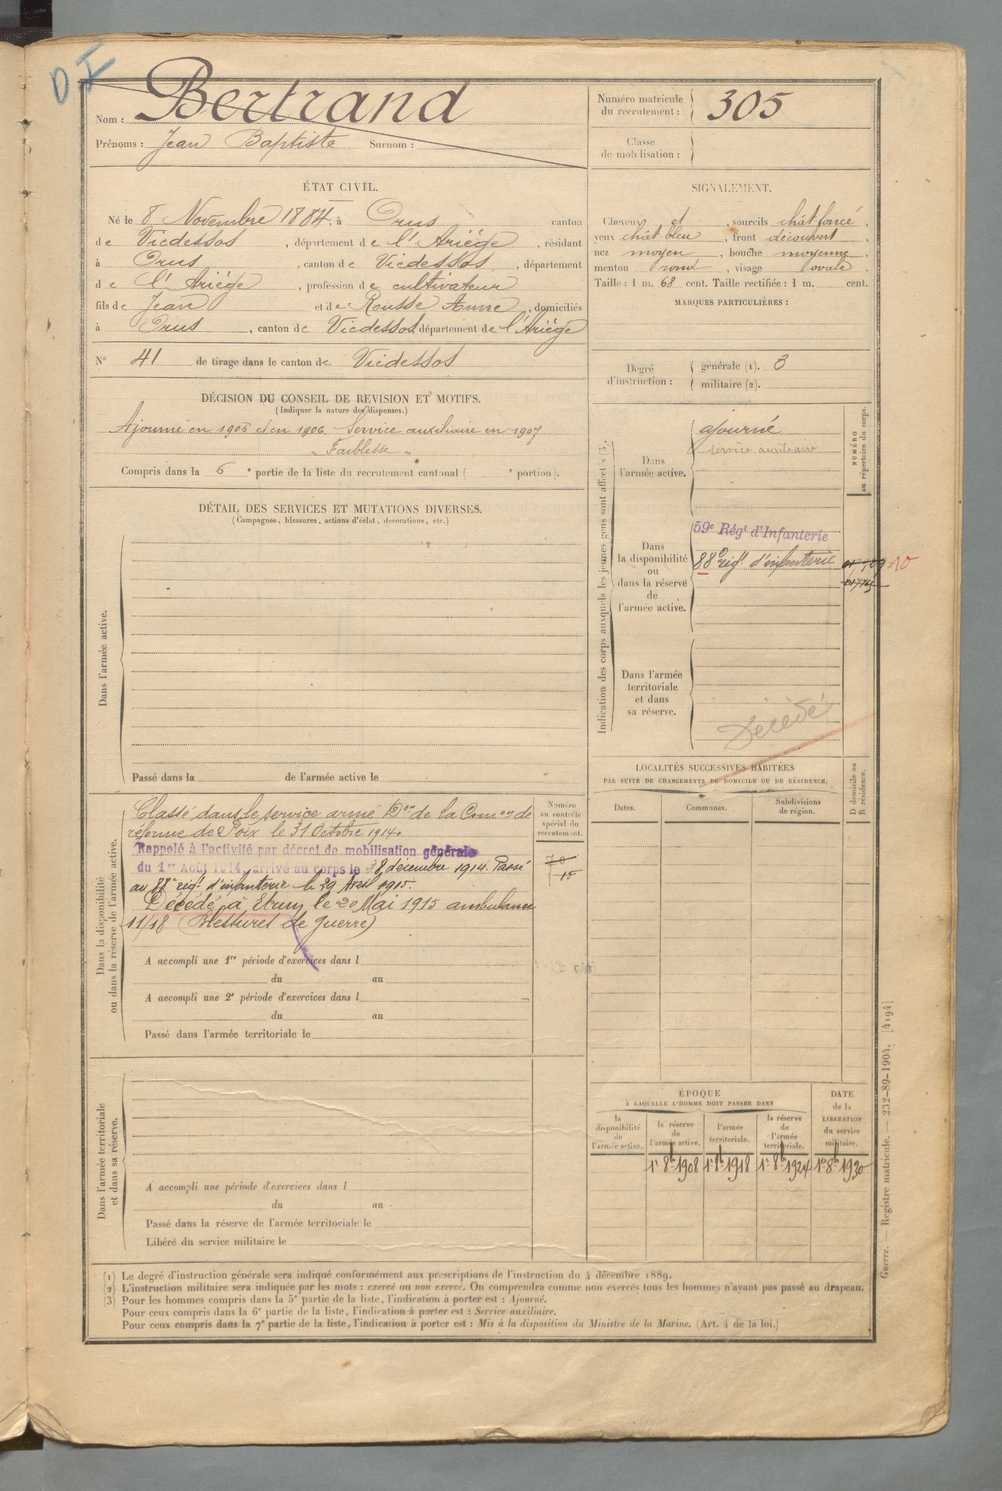 D I
Nom : Bertrand
Prénoms : Jean Baptiste Surnom :
Numéro matricule du recrutement : 305
Classe de mobilisation :
ÉTAT CIVIL.
Né le 8 Novembre 1884. à Orus canton
de Vicdessos, département de l'Ariége, résidant
à Orus, canton de Vicdessos, département
de l'Ariége, profession de cultivateur
fils de Jean et de Rousse Anne, domiciliés
à Orus, canton de Vicdessos département de l'Ariége
N° 41 de tirage dans le canton de Vicdessos
SIGNALEMENT.
Cheveux et , sourcils chât foncé,
yeux chât bleu, front découvert,
nez moyen, bouche moyenne,
menton rond, visage ovale,
Taille : 1 m. 68 cent. Taille rectifiée : 1 m. cent.
MARQUES PARTICULIÈRES :
Degré d'instruction : générale (1). 3
militaire (2).
DÉCISION DU CONSEIL DE REVISION ET MOTIFS.
(Indiquer la nature des dispenses.)
Ajourné en 1905 et en 1906. Service auxiliaire en 1907
" Faiblesse "
Compris dans la 6 e partie de la liste du recrutement cantonal ( e portion).
DÉTAIL DES SERVICES ET MUTATIONS DIVERSES.
(Campagnes, blessures, actions d'éclat, décorations, etc.)
Dans l'armée active.
Passé dans la de l'armée active le
Indication des corps auxquels les jeunes gens sont affectés (3).
NUMÉRO au répertoire du corps.
Dans l'armée active.
ajourné
Service auxiliaire
Dans la disponibilité ou dans la réserve de l'armée active.
59e Régt d'Infanterie
88e régt d'infanterie
10
Dans l'armée territoriale et dans sa réserve.
Décédé
LOCALITÉS SUCCESSIVES HABITÉES
PAR SUITE DE CHANGEMENTS DE DOMICILE OU DE RÉSIDENCE.
D domicile ou R résidence.
Dates. Communes. Subdivisions de région.
Dans la disponibilité ou dans la réserve de l'armée active.
Numéro au contrôle spécial du recrutement.
Classé dans le service armé Don de la Comon de
réforme de Foix le 31 Octobre 1914.
Rappelé à l'activité par décret de mobilisation générale
du 1er Août 1914, arrivé au corps le 8 décembre 1914. Passé
au 88e régt d'infanterie le 29 Avril 1915.
Décédé à Etrun le 20 Mai 1915 ambulance
11/18 (Blessures de guerre)
15
A accompli une 1re période d'exercices dans l
du au
A accompli une 2e période d'exercices dans l
du au
Passé dans l'armée territoriale le
Dans l'armée territoriale et dans sa réserve.
A accompli une période d'exercices dans l
du au
Passé dans la réserve de l'armée territoriale le
Libéré du service militaire le
ÉPOQUE
À LAQUELLE L'HOMME DOIT PASSER DANS
DATE de la LIBÉRATION du service militaire.
la disponibilité de l'armée active.
la réserve de l'armée active.
l'armée territoriale.
la réserve de l'armée territoriale.
1er 8bre 1908 1er 8bre 1918 1er 8bre 1924 1er 8bre 1930
(1) Le degré d'instruction générale sera indiqué conformément aux prescriptions de l'instruction du 4 décembre 1889.
(2) L'instruction militaire sera indiquée par les mots : exercé ou non exercé. On comprendra comme non exercés tous les hommes n'ayant pas passé au drapeau.
(3) Pour les hommes compris dans la 5e partie de la liste, l'indication à porter est : Ajourné.
Pour ceux compris dans la 6e partie de la liste, l'indication à porter est : Service auxiliaire.
Pour ceux compris dans la 7e partie de la liste, l'indication à porter est : Mis à la disposition du Ministre de la Marine. (Art. 4 de la loi.)
Guerre. — Registre matricule. — 232-89-1904. [4194]